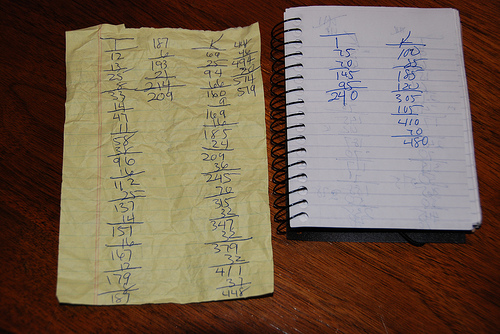 I
12
13
25
8
33
14
47
11
58
38
96
16
112
25
137
14
151
16
167
12
179
187
187
6
193
21
214
209
K
69
25
94
66
160
9
169
16
185
24
209
36
245
70
315
32
347
32
379
32
411
37
448
448
46
494
20
514
519
I
75
70
145
95
240
K
100
85
185
120
305
105
410
70
480